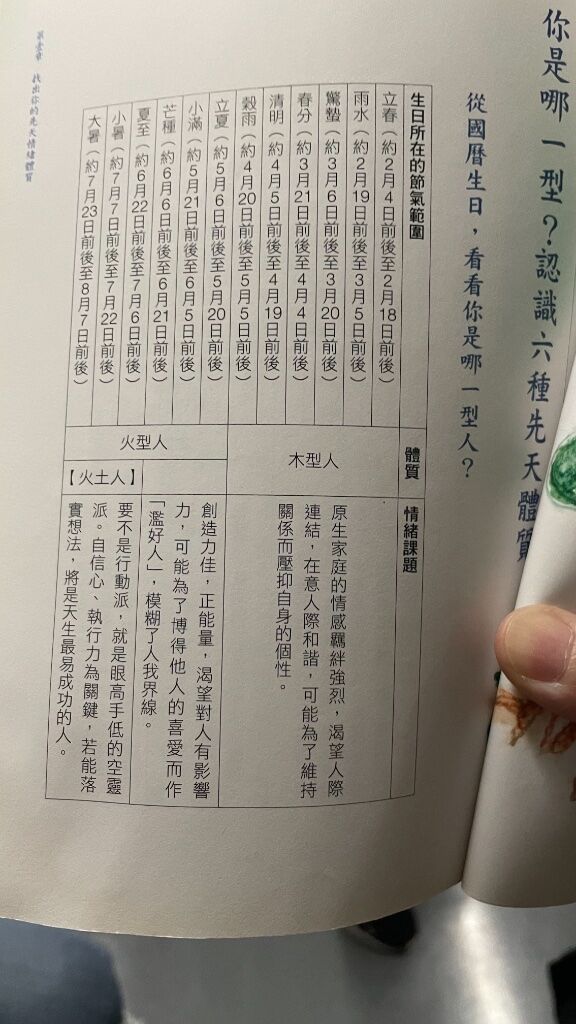 你是哪一型？認識六種先天體質
從國曆生日，看看你是哪一型人？
生日所在的節氣範圍
體質
情緒課題
立春（約2月4日前後至2月18日前後）
雨水（約2月19日前後至3月5日前後）
驚蟄（約3月6日前後至3月20日前後）
春分（約3月21日前後至4月4日前後）
清明（約4月5日前後至4月19日前後）
穀雨（約4月20日前後至5月5日前後）
木型人
原生家庭的情感羈絆強烈，渴望人際
連結，在意人際和諧，可能為了維持
關係而壓抑自身的個性。
立夏（約5月6日前後至5月20日前後）
小滿（約5月21日前後至6月5日前後）
芒種（約6月6日前後至6月21日前後）
夏至（約6月22日前後至7月6日前後）
小暑（約7月7日前後至7月22日前後）
大暑（約7月23日前後至8月7日前後）
火型人
創造力佳，正能量，渴望對人有影響
力，可能為了博得他人的喜愛而作
「濫好人」，模糊了人我界線。
【火土人】
要不是行動派，就是眼高手低的空靈
派。自信心、執行力為關鍵，若能落
實想法，將是天生最易成功的人。
第壹章　找出你的先天情緒體質